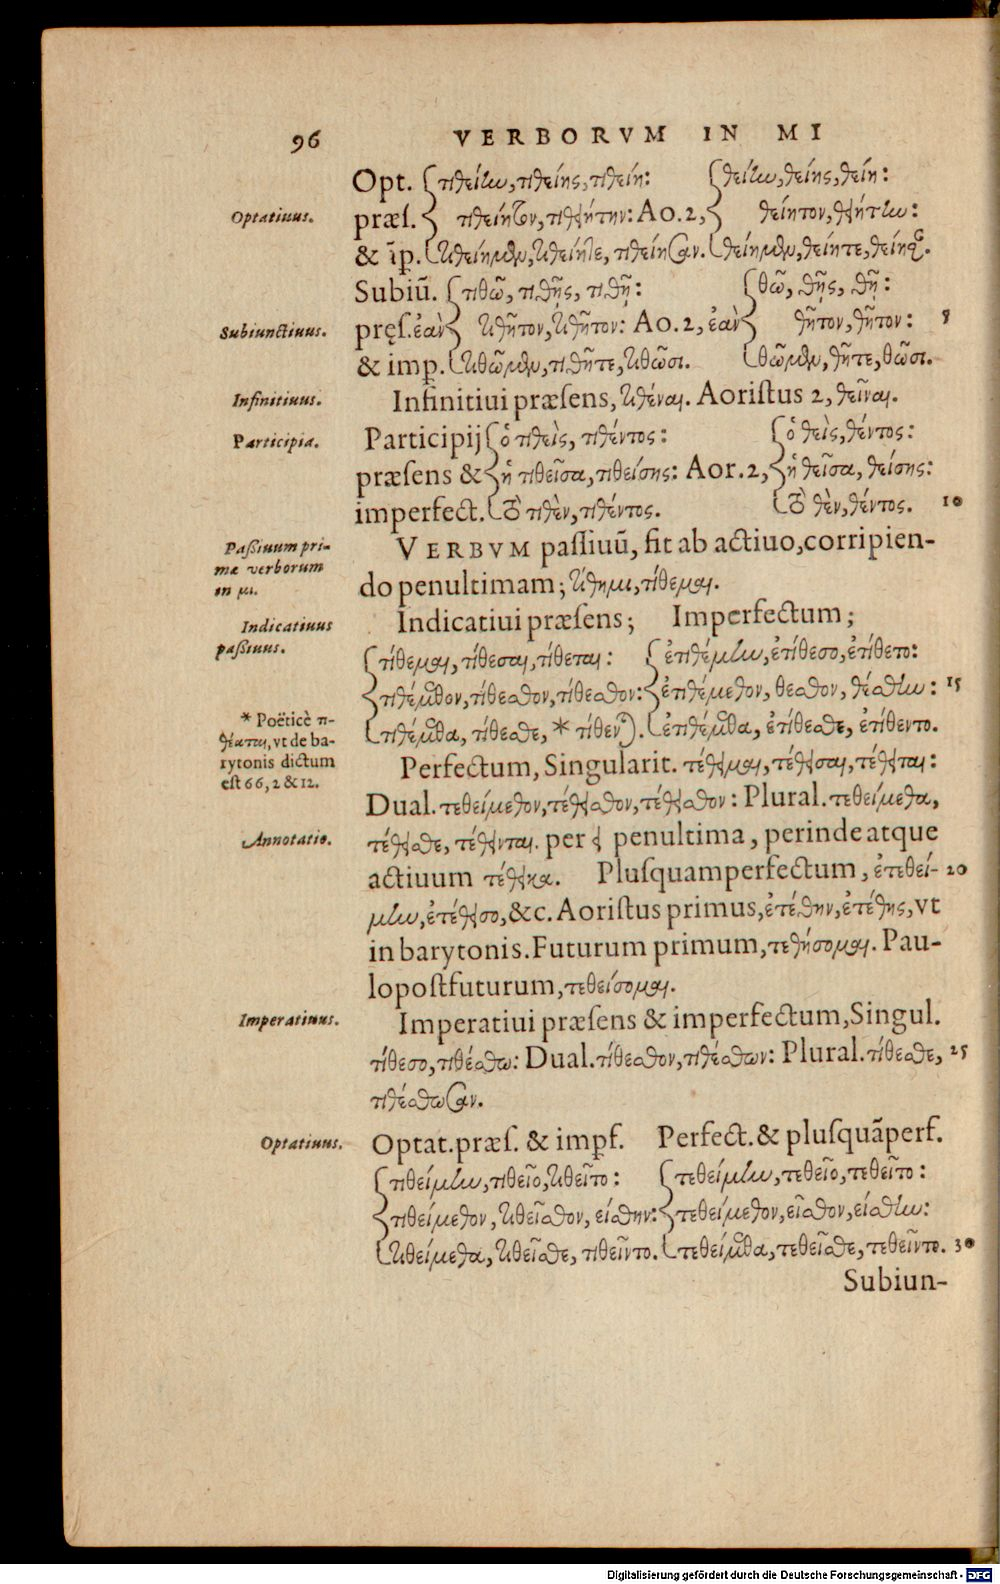 96 VERBORVM IN MI
Opt. τιθείην, τιθείης, τιθείη: θείην, θείης, θείη:
Optatiuus. præſ. τιθείητον, τιθειήτην: Ao. 2, θείητον, θειήτην:
& ĩp. τιθείημεν, τιθείητε, τιθείησαν. θείημεν, θείητε, θείησαν.
Subiũ. τιθῶ, τιθῇς, τιθῇ: θῶ, θῇς, θῇ:
Subiunctiuus. pręſ. ἐὰν τιθῆτον, τιθῆτον: Ao. 2, ἐὰν θῆτον, θῆτον: 5
& imp. τιθῶμεν, τιθῆτε, τιθῶσι. θῶμεν, θῆτε, θῶσι.
Infinitiuus. Infinitiui præſens, τιθέναι. Aoriſtus 2, θεῖναι.
Participia. Participij ὁ τιθεὶς, τιθέντος: ὁ θεὶς, θέντος:
præſens & ἡ τιθεῖσα, τιθείσης: Aor. 2, ἡ θεῖσα, θείσης:
imperfect. τὸ τιθὲν, τιθέντος. τὸ θὲν, θέντος. 10
Paſſiuum pri-
mæ verborum
in μι.
VERBVM paſſiuũ, fit ab actiuo, corripien-
do penultimam; τίθημι, τίθεμαι.
Indicatiuus
paſſiuus.
Indicatiui præſens; Imperfectum;
τίθεμαι, τίθεσαι, τίθεται: ἐτιθέμην, ἐτίθεσο, ἐτίθετο:
τιθέμεθον, τίθεσθον, τίθεσθον: ἐτιθέμεθον, θεσθον, θέσθην: 15
τιθέμεθα, τίθεσθε, * τίθενται. ἐτιθέμεθα, ἐτίθεσθε, ἐτίθεντο.
* Poëticè τι-
θέαται, vt de ba-
rytonis dictum
eſt 66, 2 & 12.
Perfectum, Singularit. τέθειμαι, τέθεισαι, τέθειται:
Dual. τεθείμεθον, τέθεισθον, τέθεισθον: Plural. τεθείμεθα,
Annotatio. τέθεισθε, τέθεινται. per ει penultima, perinde atque
actiuum τέθεικα. Pluſquamperfectum, ἐτεθεί- 20
μην, ἐτέθεισο, &c. Aoriſtus primus, ἐτέθην, ἐτέθης, vt
in barytonis. Futurum primum, τεθήσομαι. Pau-
lopoſtfuturum, τεθείσομαι.
Imperatiuus. Imperatiui præſens & imperfectum, Singul.
τίθεσο, τιθέσθω: Dual. τίθεσθον, τιθέσθων: Plural. τίθεσθε, 25
τιθέσθωσαν.
Optatiuus. Optat. præſ. & impf. Perfect. & pluſquãperf.
τιθείμην, τιθεῖο, τιθεῖτο: τεθείμην, τεθεῖο, τεθεῖτο:
τιθείμεθον, τιθεῖσθον, είσθην: τεθείμεθον, εῖσθον, είσθην:
τιθείμεθα, τιθεῖσθε, τιθεῖντο. τεθείμεθα, τεθεῖσθε, τεθεῖντο. 30
Subiun-
Digitalisierung gefördert durch die Deutsche Forschungsgemeinschaft - DFG